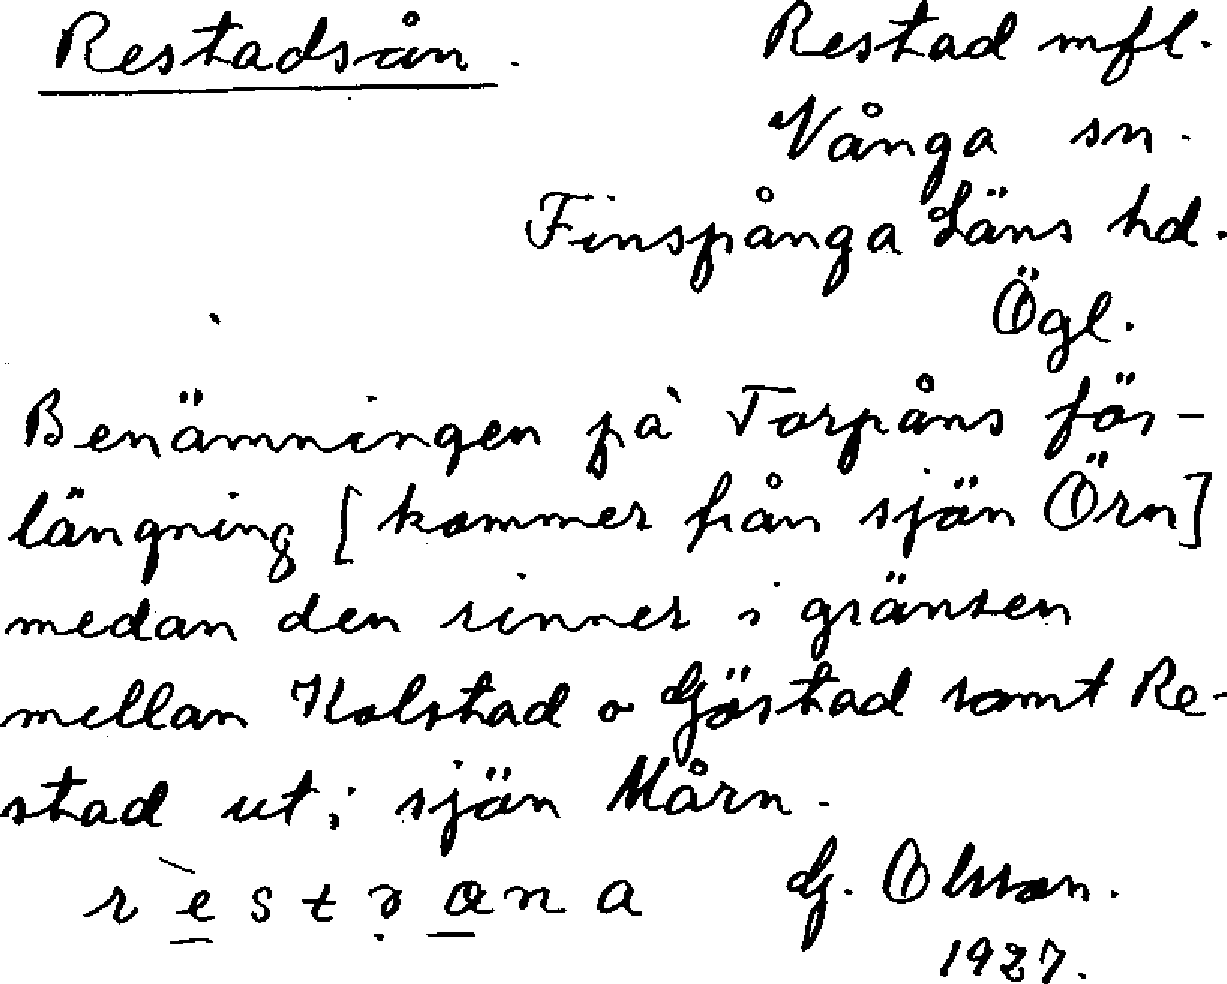 Restadsån. Restad mfl.
Vånga sn.
Finspånga Läns hd.
Ögl.
Benämningen på Torpåns för-
längning [kommer från sjön Örn]
medan den rinner i gränsen
mellan Kolstad o Göstad samt Re-
stad ut i sjön Mårn.
G. Olsson.
1927.